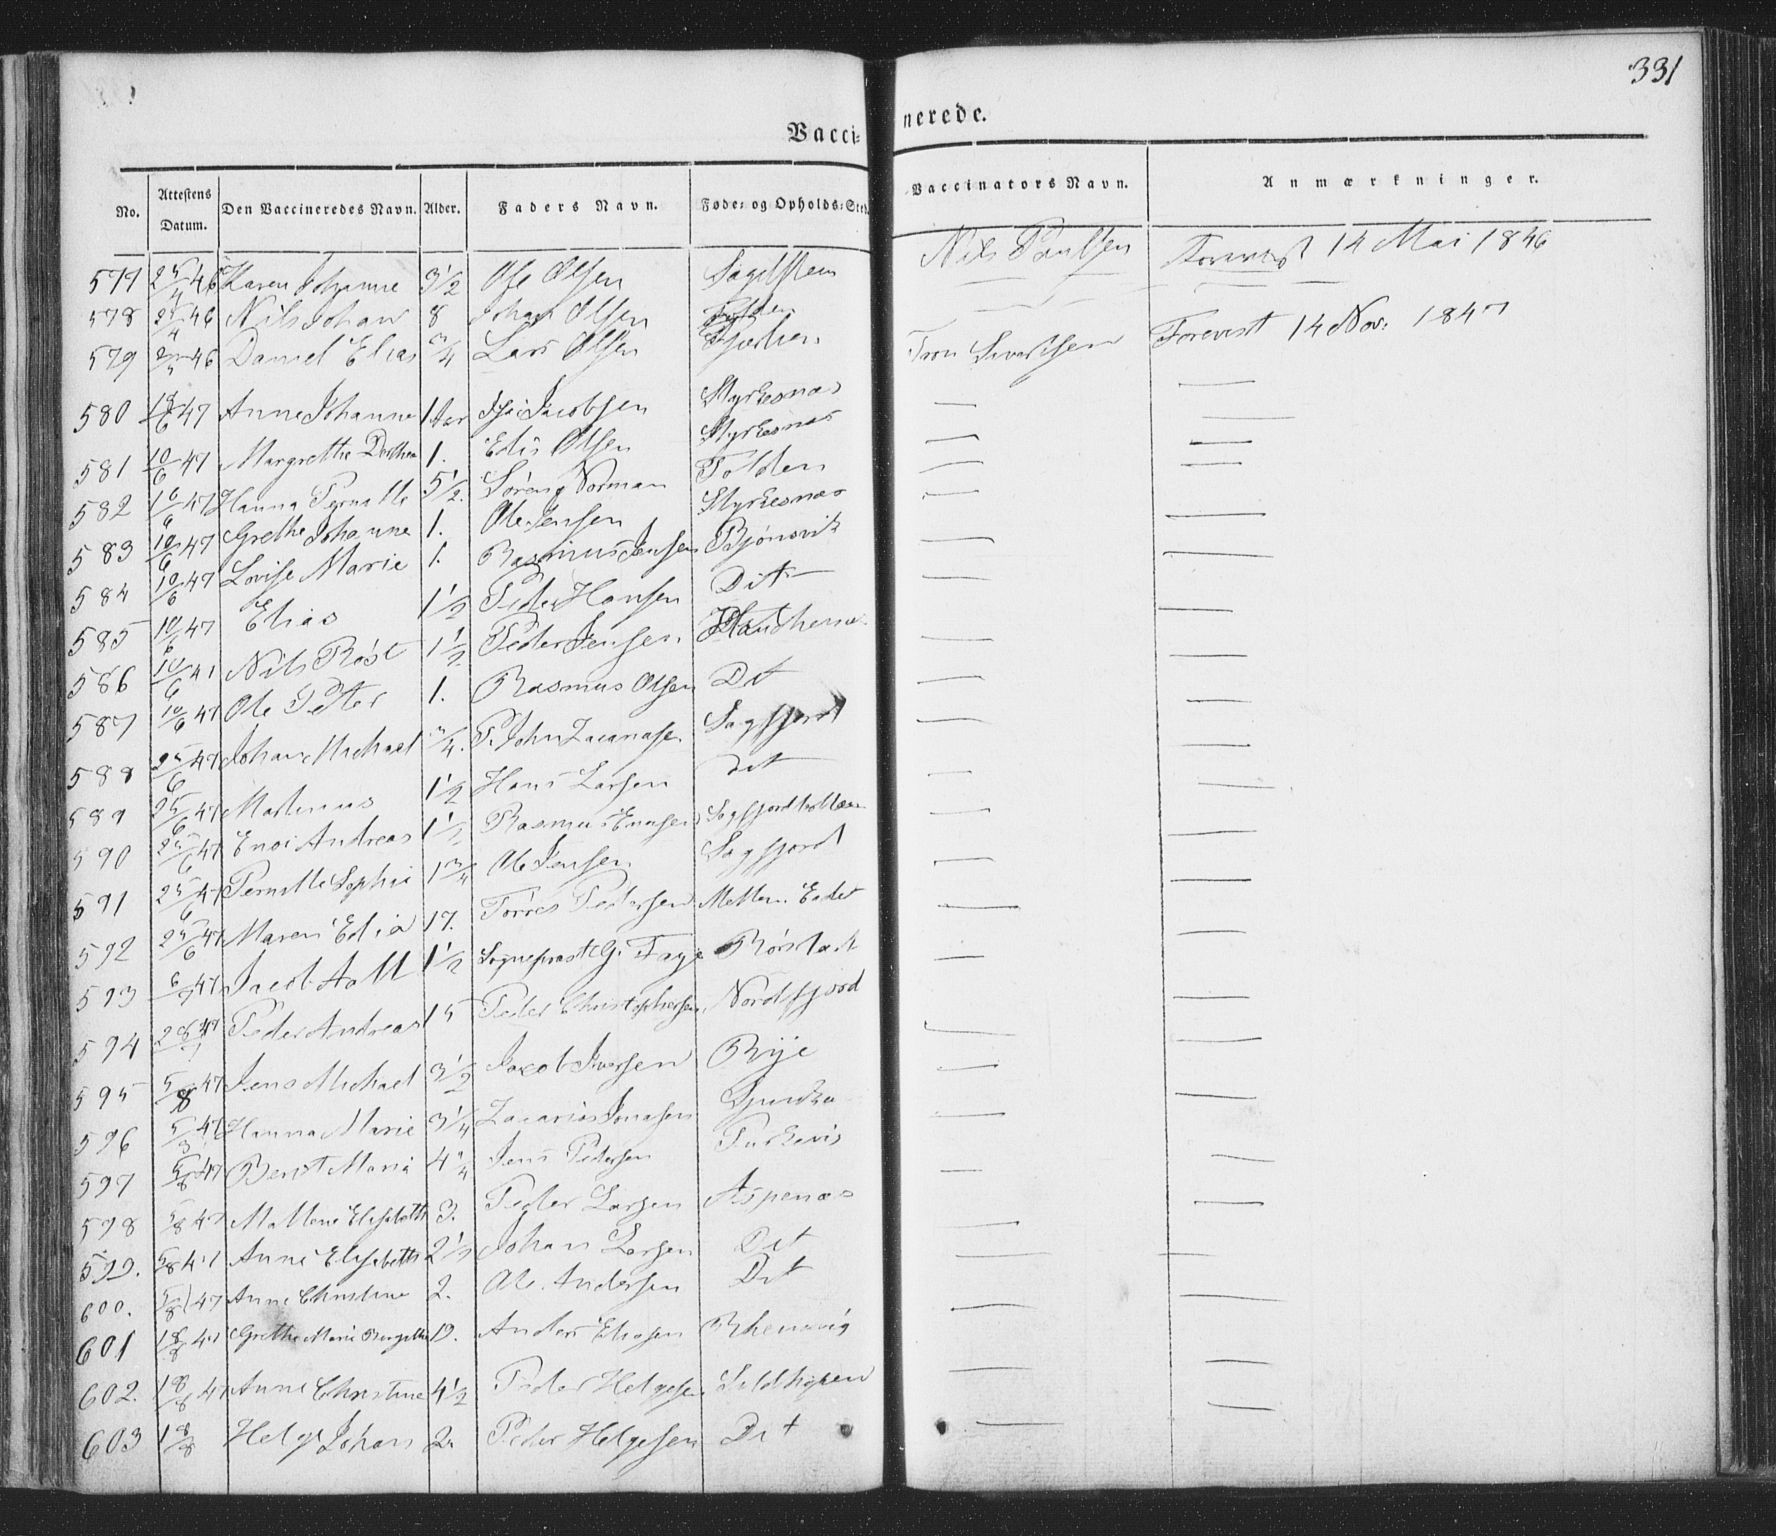 331
Vacci- nerede.
No. Attestens Datum. Den Vaccineredes Navn. Alder. Faders Navn. Føde- og Opholds-Sted. Vaccinators Navn. Anmærkninger.
577 25/4 46 Karen Johanne 3 1/2 Ole Olsen Nils Paulsen Forevist 14 Mai 1846
578 25/4 46 Nils Johan 8 Johan Olsen Folden
579 46 Daniel Elias 3/4 Lars Olsen Tron Sivertsen Forevist 14 Nov. 1847
580 47 Anne Johanne 1 Aar Jacobsen Styrkesnæs — —
581 10/6 47 Margrethe Dorthea 1. Edis Olsen Styrkesnæs — —
582 10/6 47 Hanna Pernille 5 1/2. Søren Norman Folden — —
583 10/6 47 Grethe Johanne 1. Ole Jensen Styrkesnæs — —
584 10/6 47 Lovise Marie 1. Rasmus Jensen Bjønsvik — —
585 10/6 47 Elias 1 1/2 Peder Hansen Dit — —
586 10/6 47 Nils Røst 1 1/2 Peder Jensen — —
587 10/6 47 Ole Petter 1. Rasmus Olsen Dit — —
588 25/6 47 Johan Michael 3/4. P. John Sagfjord — —
589 25/6 47 Martinus 1 1/2 Hans Larsen dit — —
590 25/6 47 Andreas 1 1/2 Rasmus — —
591 25/6 47 Pernille Sophie 1 3/4 Ole Jensen Sagfjord — —
592 25/6 47 Maren Edia 17. Torres Pedersen Mellem Eidet — —
593 47 Jacob Aall 1 1/2 Sogneprest G. Faye Rørstad — —
594 28/7 47 Peder Andreas 15 Peder Christophersen Nordfjord — —
595 5/8 47 Jens Michael 3 1/2 Jacob Iversen Rije — —
596 5/8 47 Hanna Marie 3 1/4 Zacarias Jonasen — —
597 5/8 47 Berit Maria 4 1/4 Jens Pedersen — —
598 5/8 47 Mallene Elisabeth 3. Peder Larsen Aspenæs — —
599. 5/8 47 Anne Elisabeth 2 1/2 Johan Larsen Dit — —
600. 5/8 47 Anne Christine 2. Ole Andersen Dit — —
601 18/8 47 Grethe Marie 19. Anders Eliasen — —
602. 18/8 47 Anne Christine 4 1/2 Peder Helgesen Sildhopen — —
603 18/8 Helge Johan 2. Peder Helgesen Dit — —